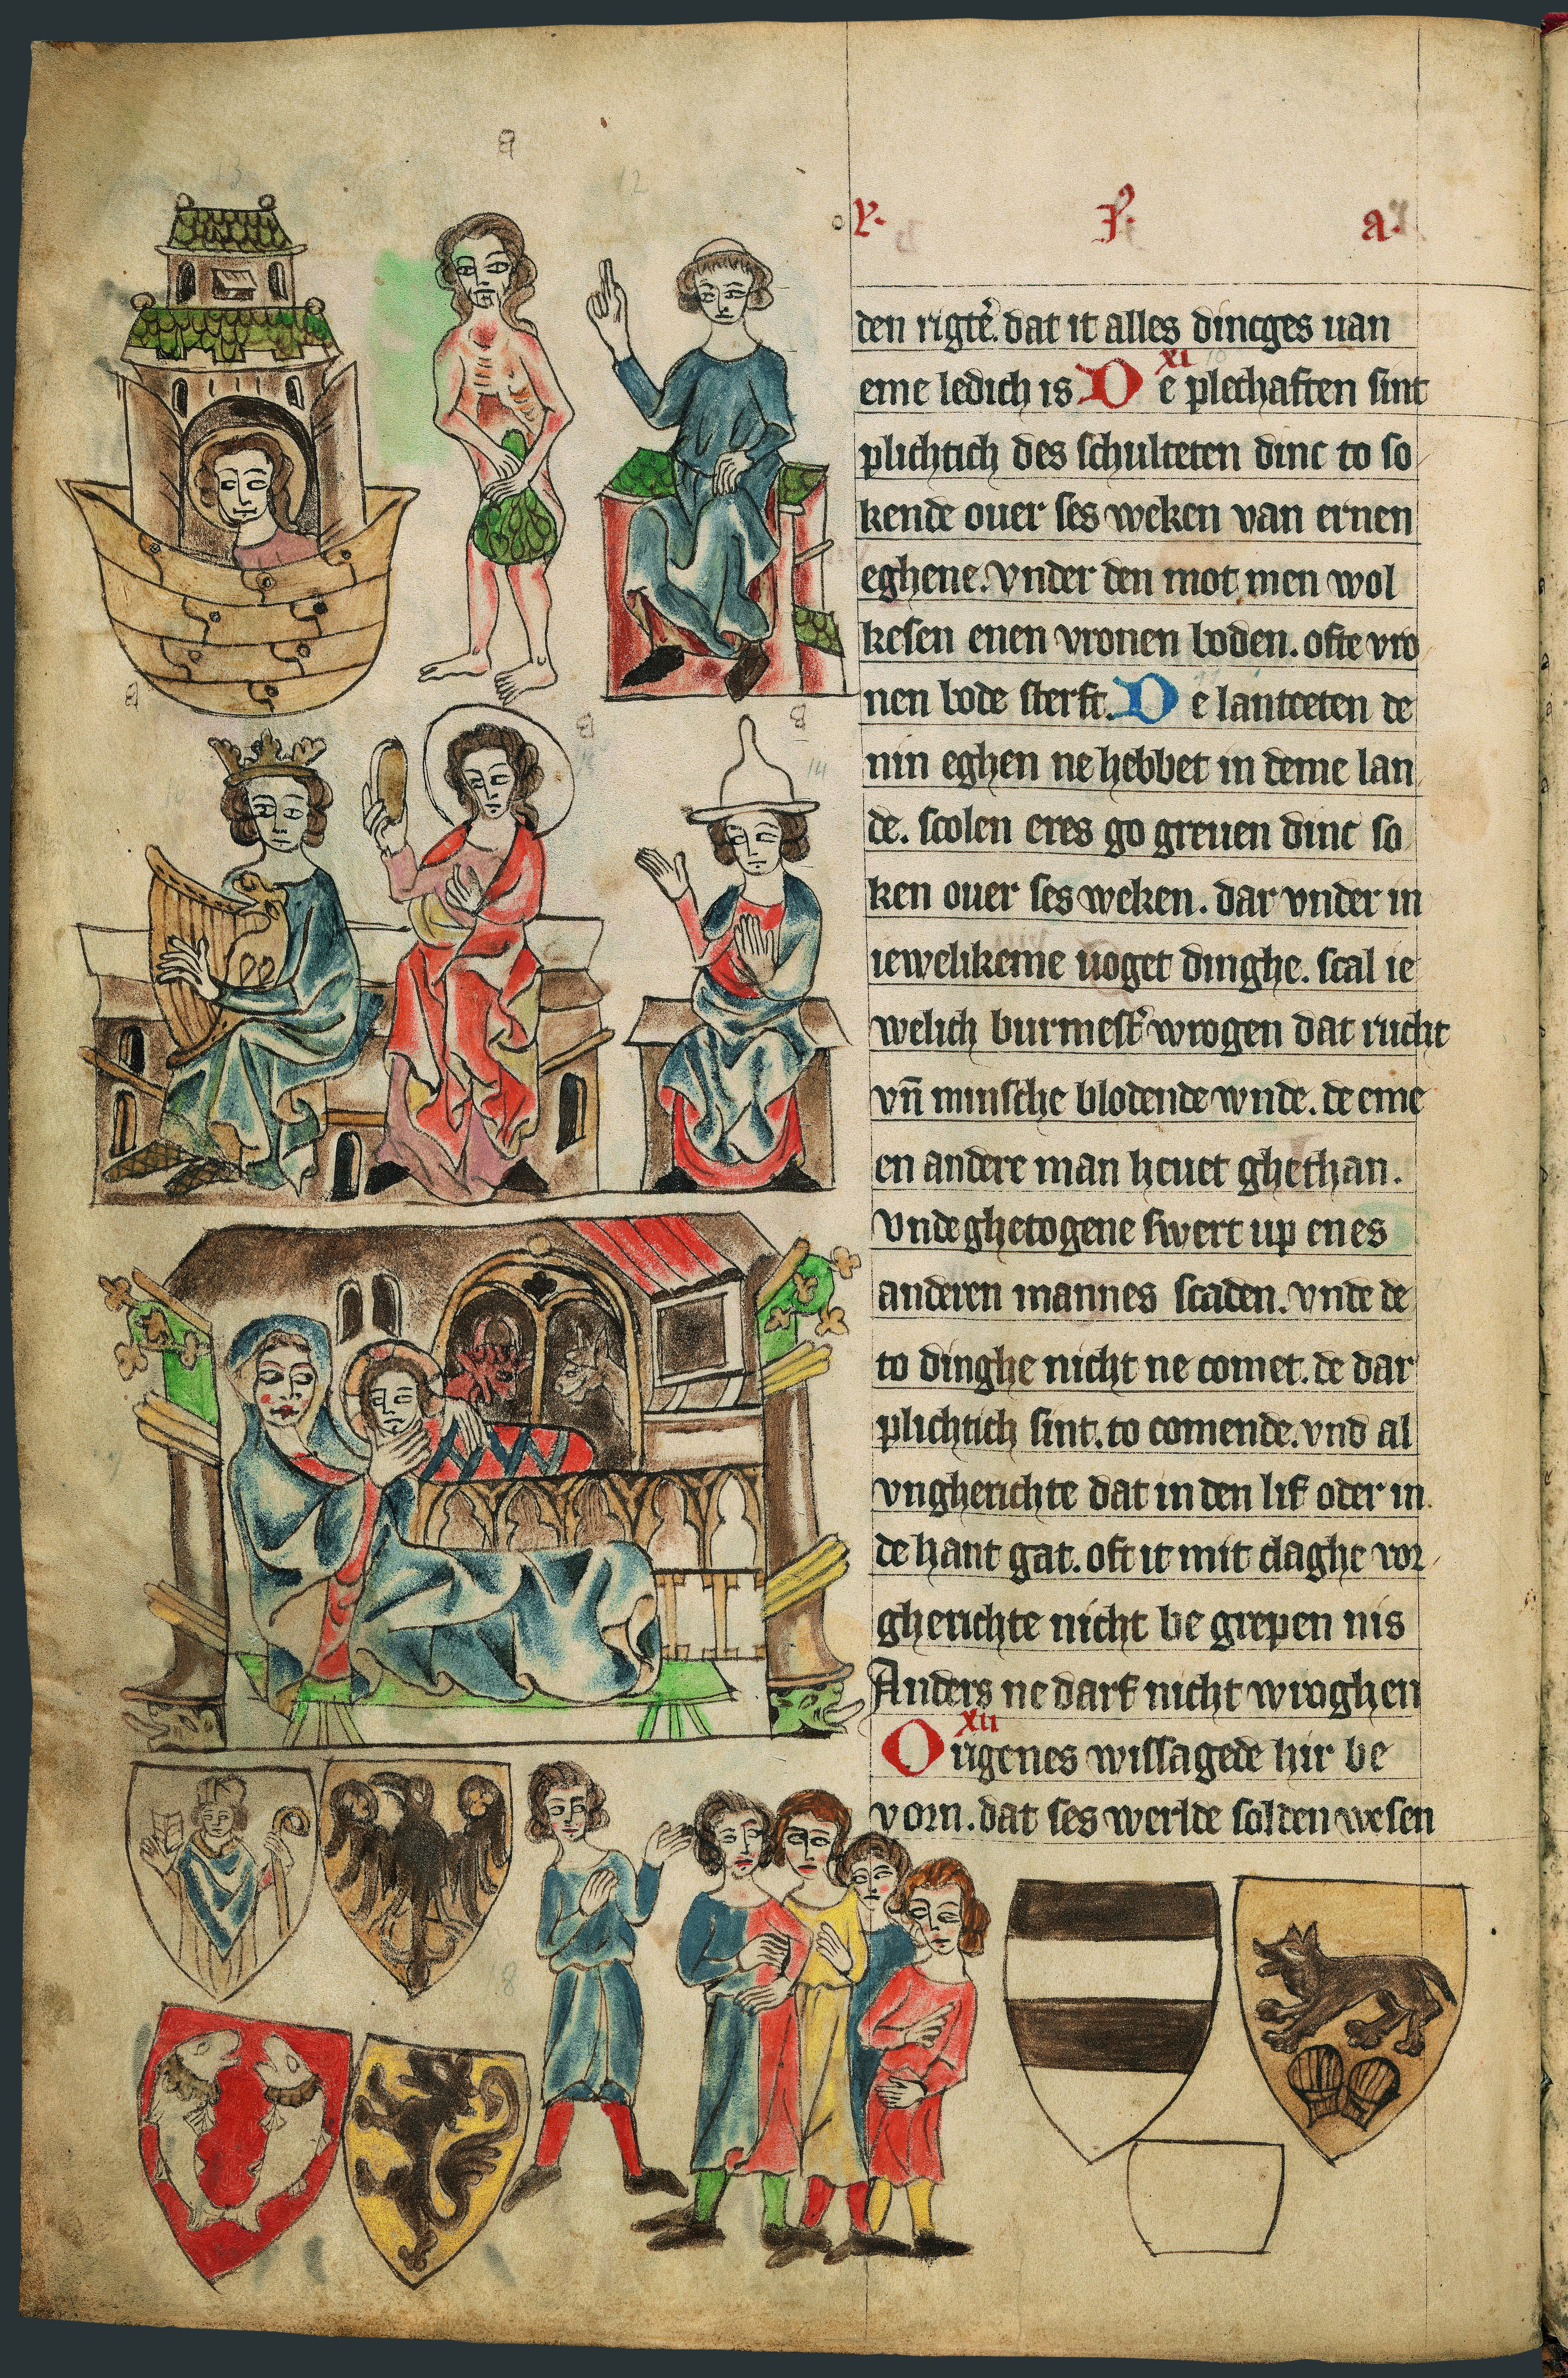 den rigtẽ. dat it alles dincges uan
eme ledich is D XI e plechaften sint
plichtich des schulteten dinc to so
kende ouer ses weken van ernen
eghene. vnder den mot men wol
kesen enen vronen boden. ofte vro
nen bode sterft. D e lantceten de
nin eghen ne hebbet in deme lan
de. scolen eres go greuen dinc so
ken ouer ses weken. dar vnder in
iewelikeme uoget dinghe. scal ie
welich burmest͛ wrogen dat rucht
vn̄ minsche blodende wnde. de eme
en andere man heuet ghethan.
vnde ghetogene swert up enes
anderen mannes scaden. vnde de
to dinghe nicht ne comet. de dar
plichtich sint. to comende. vnd al
vngherichte dat in den lif oder in
de hant gat. oft it mit claghe vor
gherichte nicht be grepen nis
Anders ne darf nicht wroghen
XII
Origenes wissagede hir be
vorn. dat ses werlde solden wesen